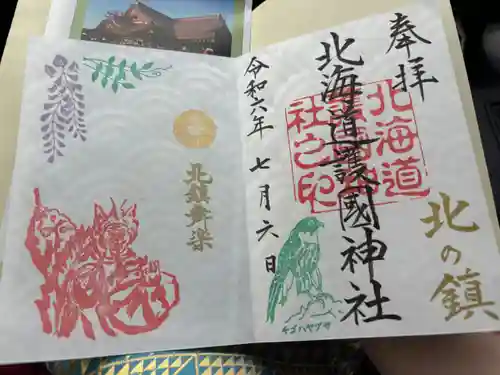 奉拝
北海道護國神社
北海道
護國神
社之印
北の鎮
チゴハヤブサ
令和六年 七月六日
北鎮舞楽